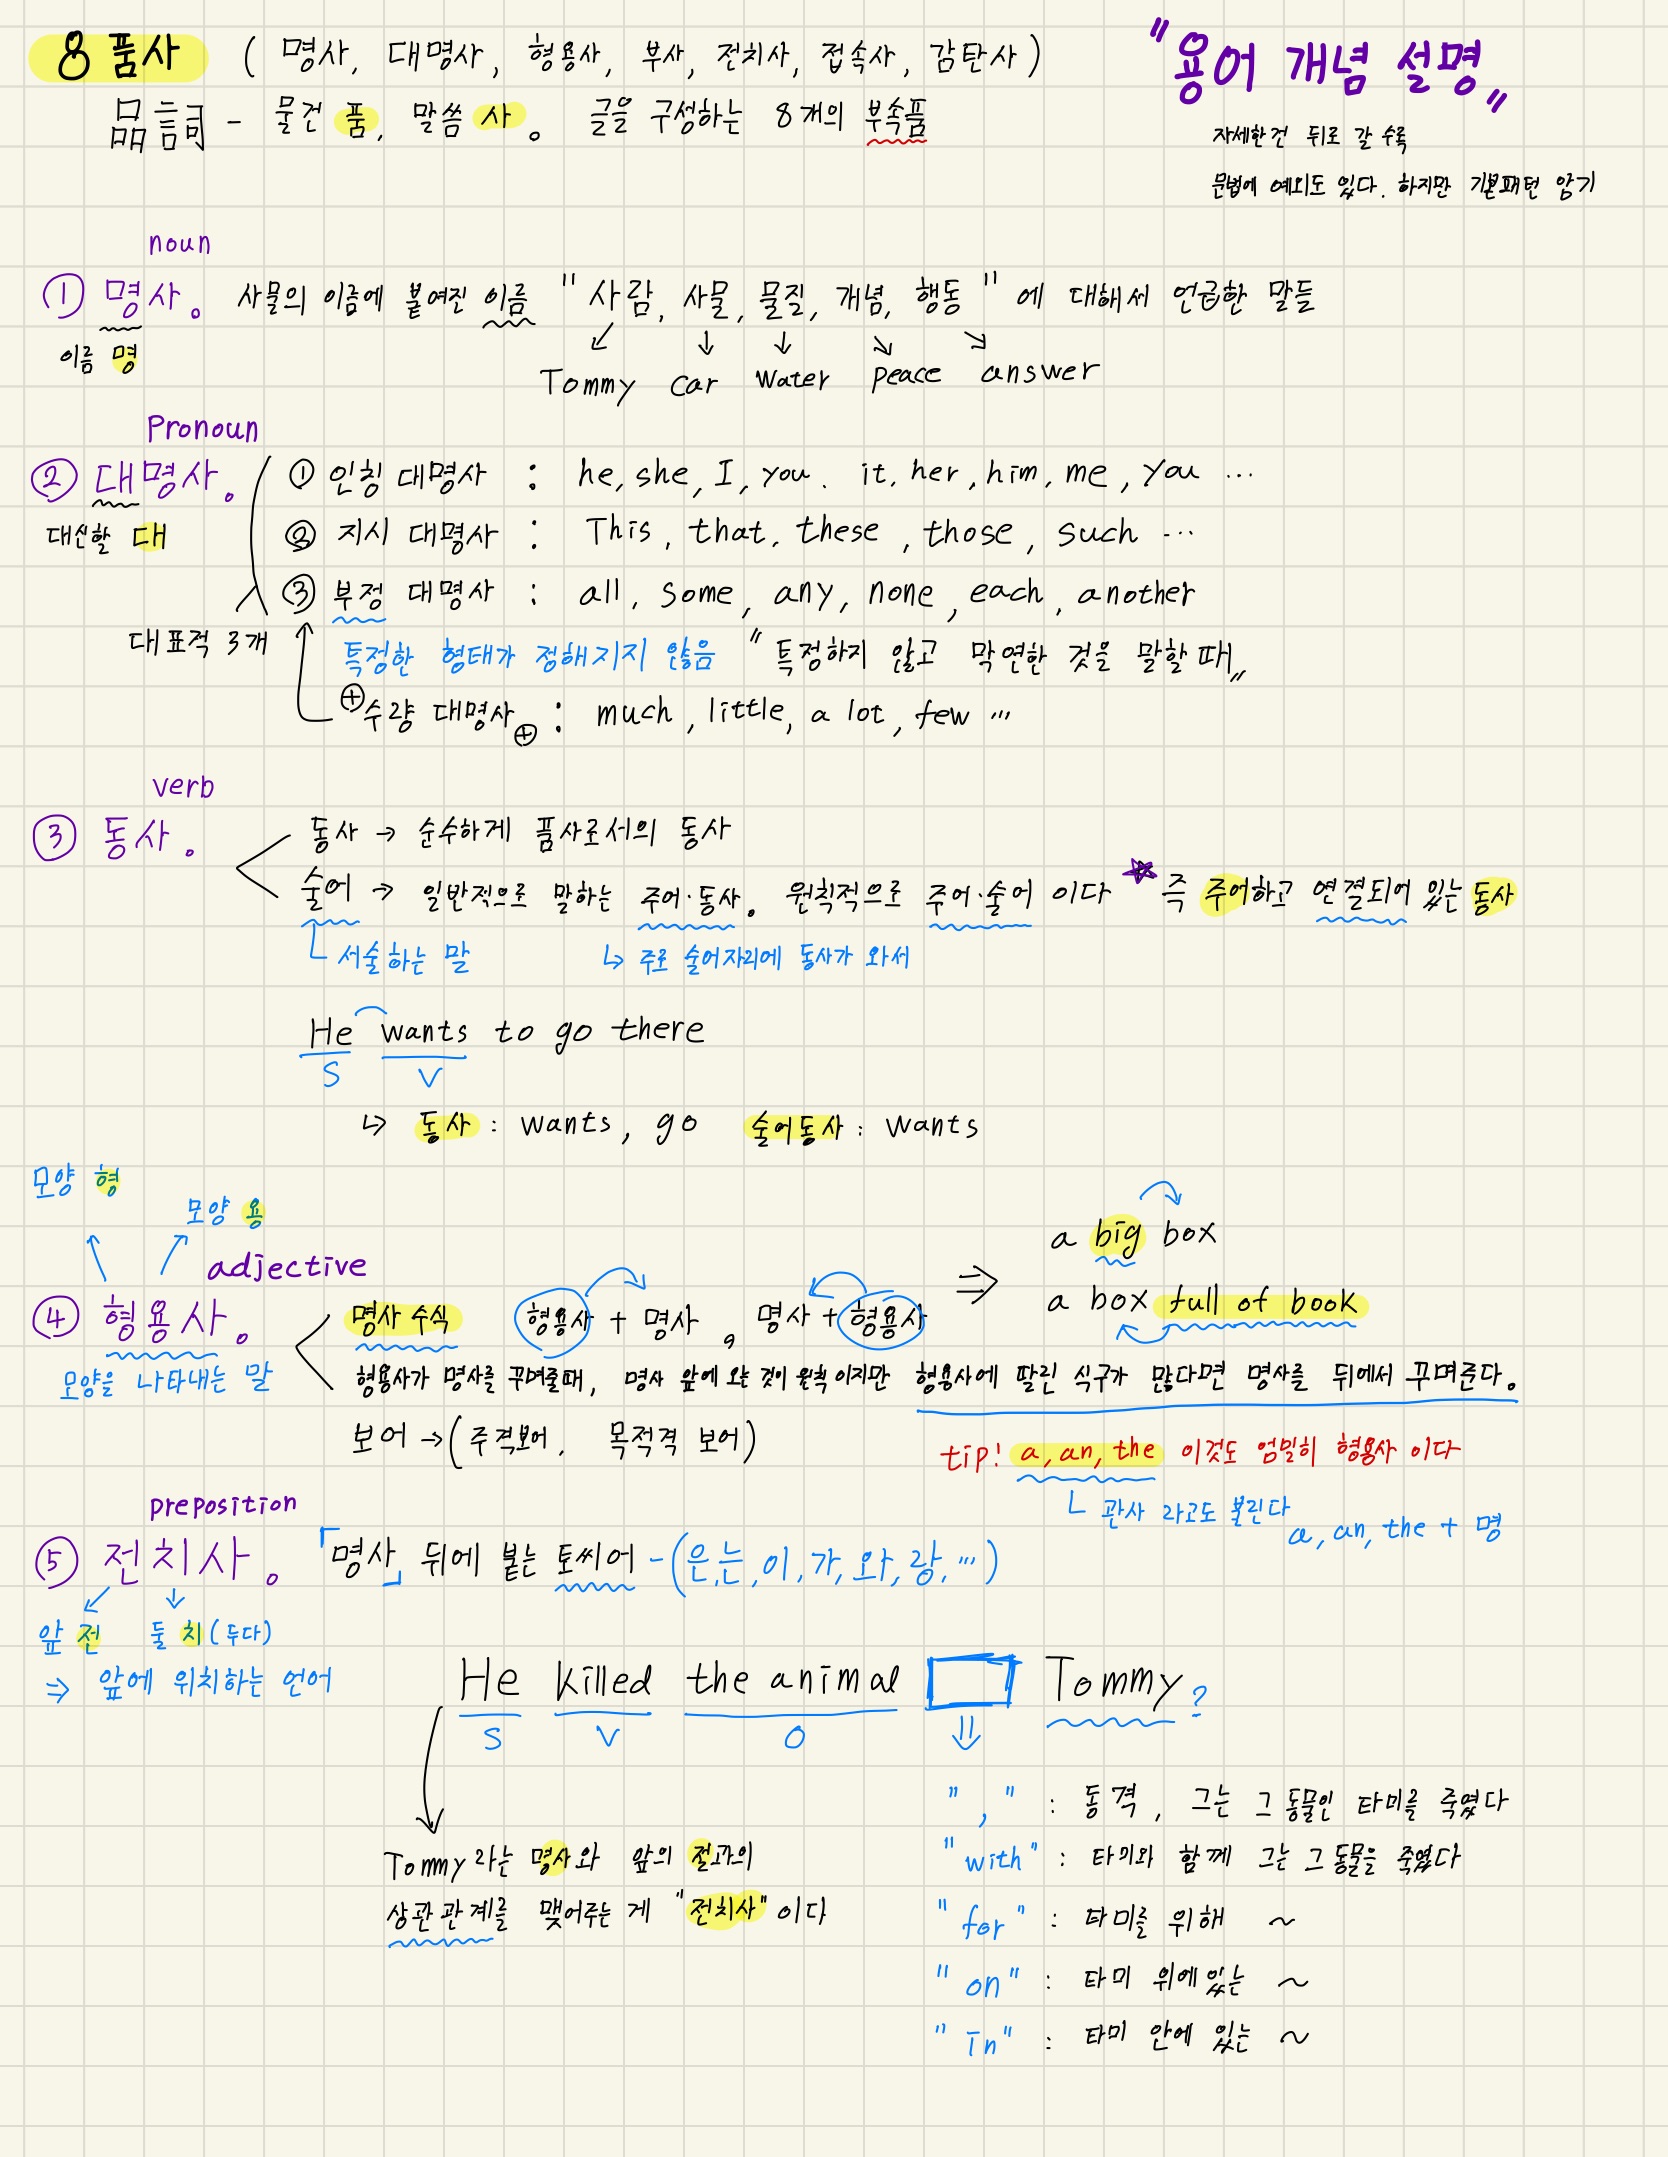 8 품사 ( 명사, 대명사, 형용사, 부사, 전치사, 접속사, 감탄사 )
"용어 개념 설명"
品詞 - 물건 품, 말씀 사. 글을 구성하는 8개의 부속품
자세한건 뒤로 갈 수록
문법에 예외도 있다. 하지만 기본패턴 암기
noun
① 명사. 사물의 이름에 붙여진 이름 "사람, 사물, 물질, 개념, 행동"에 대해서 언급한 말들
이름 명
Tommy car water peace answer
Pronoun
② 대명사.
대신할 대
① 인칭 대명사 : he, she, I, you. it, her, him, me, you ...
② 지시 대명사 : This, that, these, those, such ...
③ 부정 대명사 : all, some, any, none, each, another
대표적 3개
특정한 형태가 정해지지 않음 "특정하지 않고 막연한 것을 말할 때"
⊕ 수량 대명사 ⊕ : much, little, a lot, few ...
verb
③ 동사.
동사 → 순수하게 품사로서의 동사
술어 → 일반적으로 말하는 주어·동사. 원칙적으로 주어·술어 이다 ★ 즉 주어하고 연결되어 있는 동사
ㄴ 서술하는 말
↳ 주로 술어자리에 동사가 와서
He wants to go there
S V
↳ 동사 : wants, go 술어동사 : wants
모양 형
모양 용
adjective
④ 형용사.
모양을 나타내는 말
명사 수식 형용사 + 명사, 명사 + 형용사 ⇒
a big box
a box full of book
형용사가 명사를 꾸며줄때, 명사 앞에 오는 것이 원칙 이지만 형용사에 딸린 식구가 많다면 명사를 뒤에서 꾸며준다.
보어 → ( 주격보어, 목적격 보어 )
tip! a, an, the 이것도 엄밀히 형용사 이다
ㄴ 관사 라고도 불린다
a, an, the + 명
preposition
⑤ 전치사. 「명사」 뒤에 붙는 토씨어 - (은, 는, 이, 가, 와, 랑, ...)
앞 전 둘 치 (두다)
⇒ 앞에 위치하는 언어
He killed the animal □ Tommy ?
S V O
"," : 동격, 그는 그 동물인 타미를 죽였다
"with" : 타미와 함께 그는 그 동물을 죽였다
"for" : 타미를 위해 ~
"on" : 타미 위에있는 ~
"In" : 타미 안에 있는 ~
Tommy 라는 명사와 앞의 절과의
상관관계를 맺어주는 게 "전치사" 이다